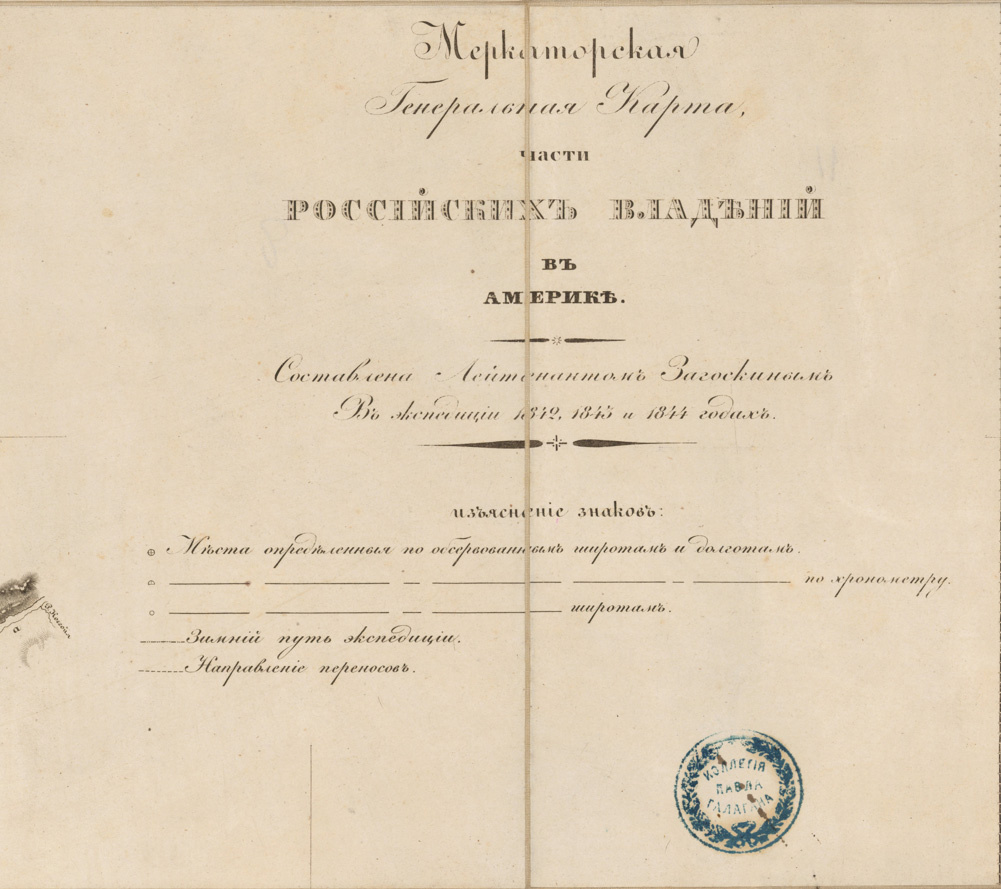 Меркаторская
Генеральная Карта,
части
РОССІЙСКИХЪ ВЛАДѢНІЙ
ВЪ
АМЕРИКѢ.
Составлена Лейтенантомъ Загоскинымъ
Въ экспедиціи 1842, 1843 и 1844 годахъ.
изъясненіе знаковъ:
Мѣста опредѣленныя по обсервованнымъ широтамъ и долготамъ.
по хронометру.
широтамъ.
Зимній путь экспедиціи.
Направленіе переносовъ.
КОЛЛЕГІЯ
ПАВЛА
ГАЛАГАНА